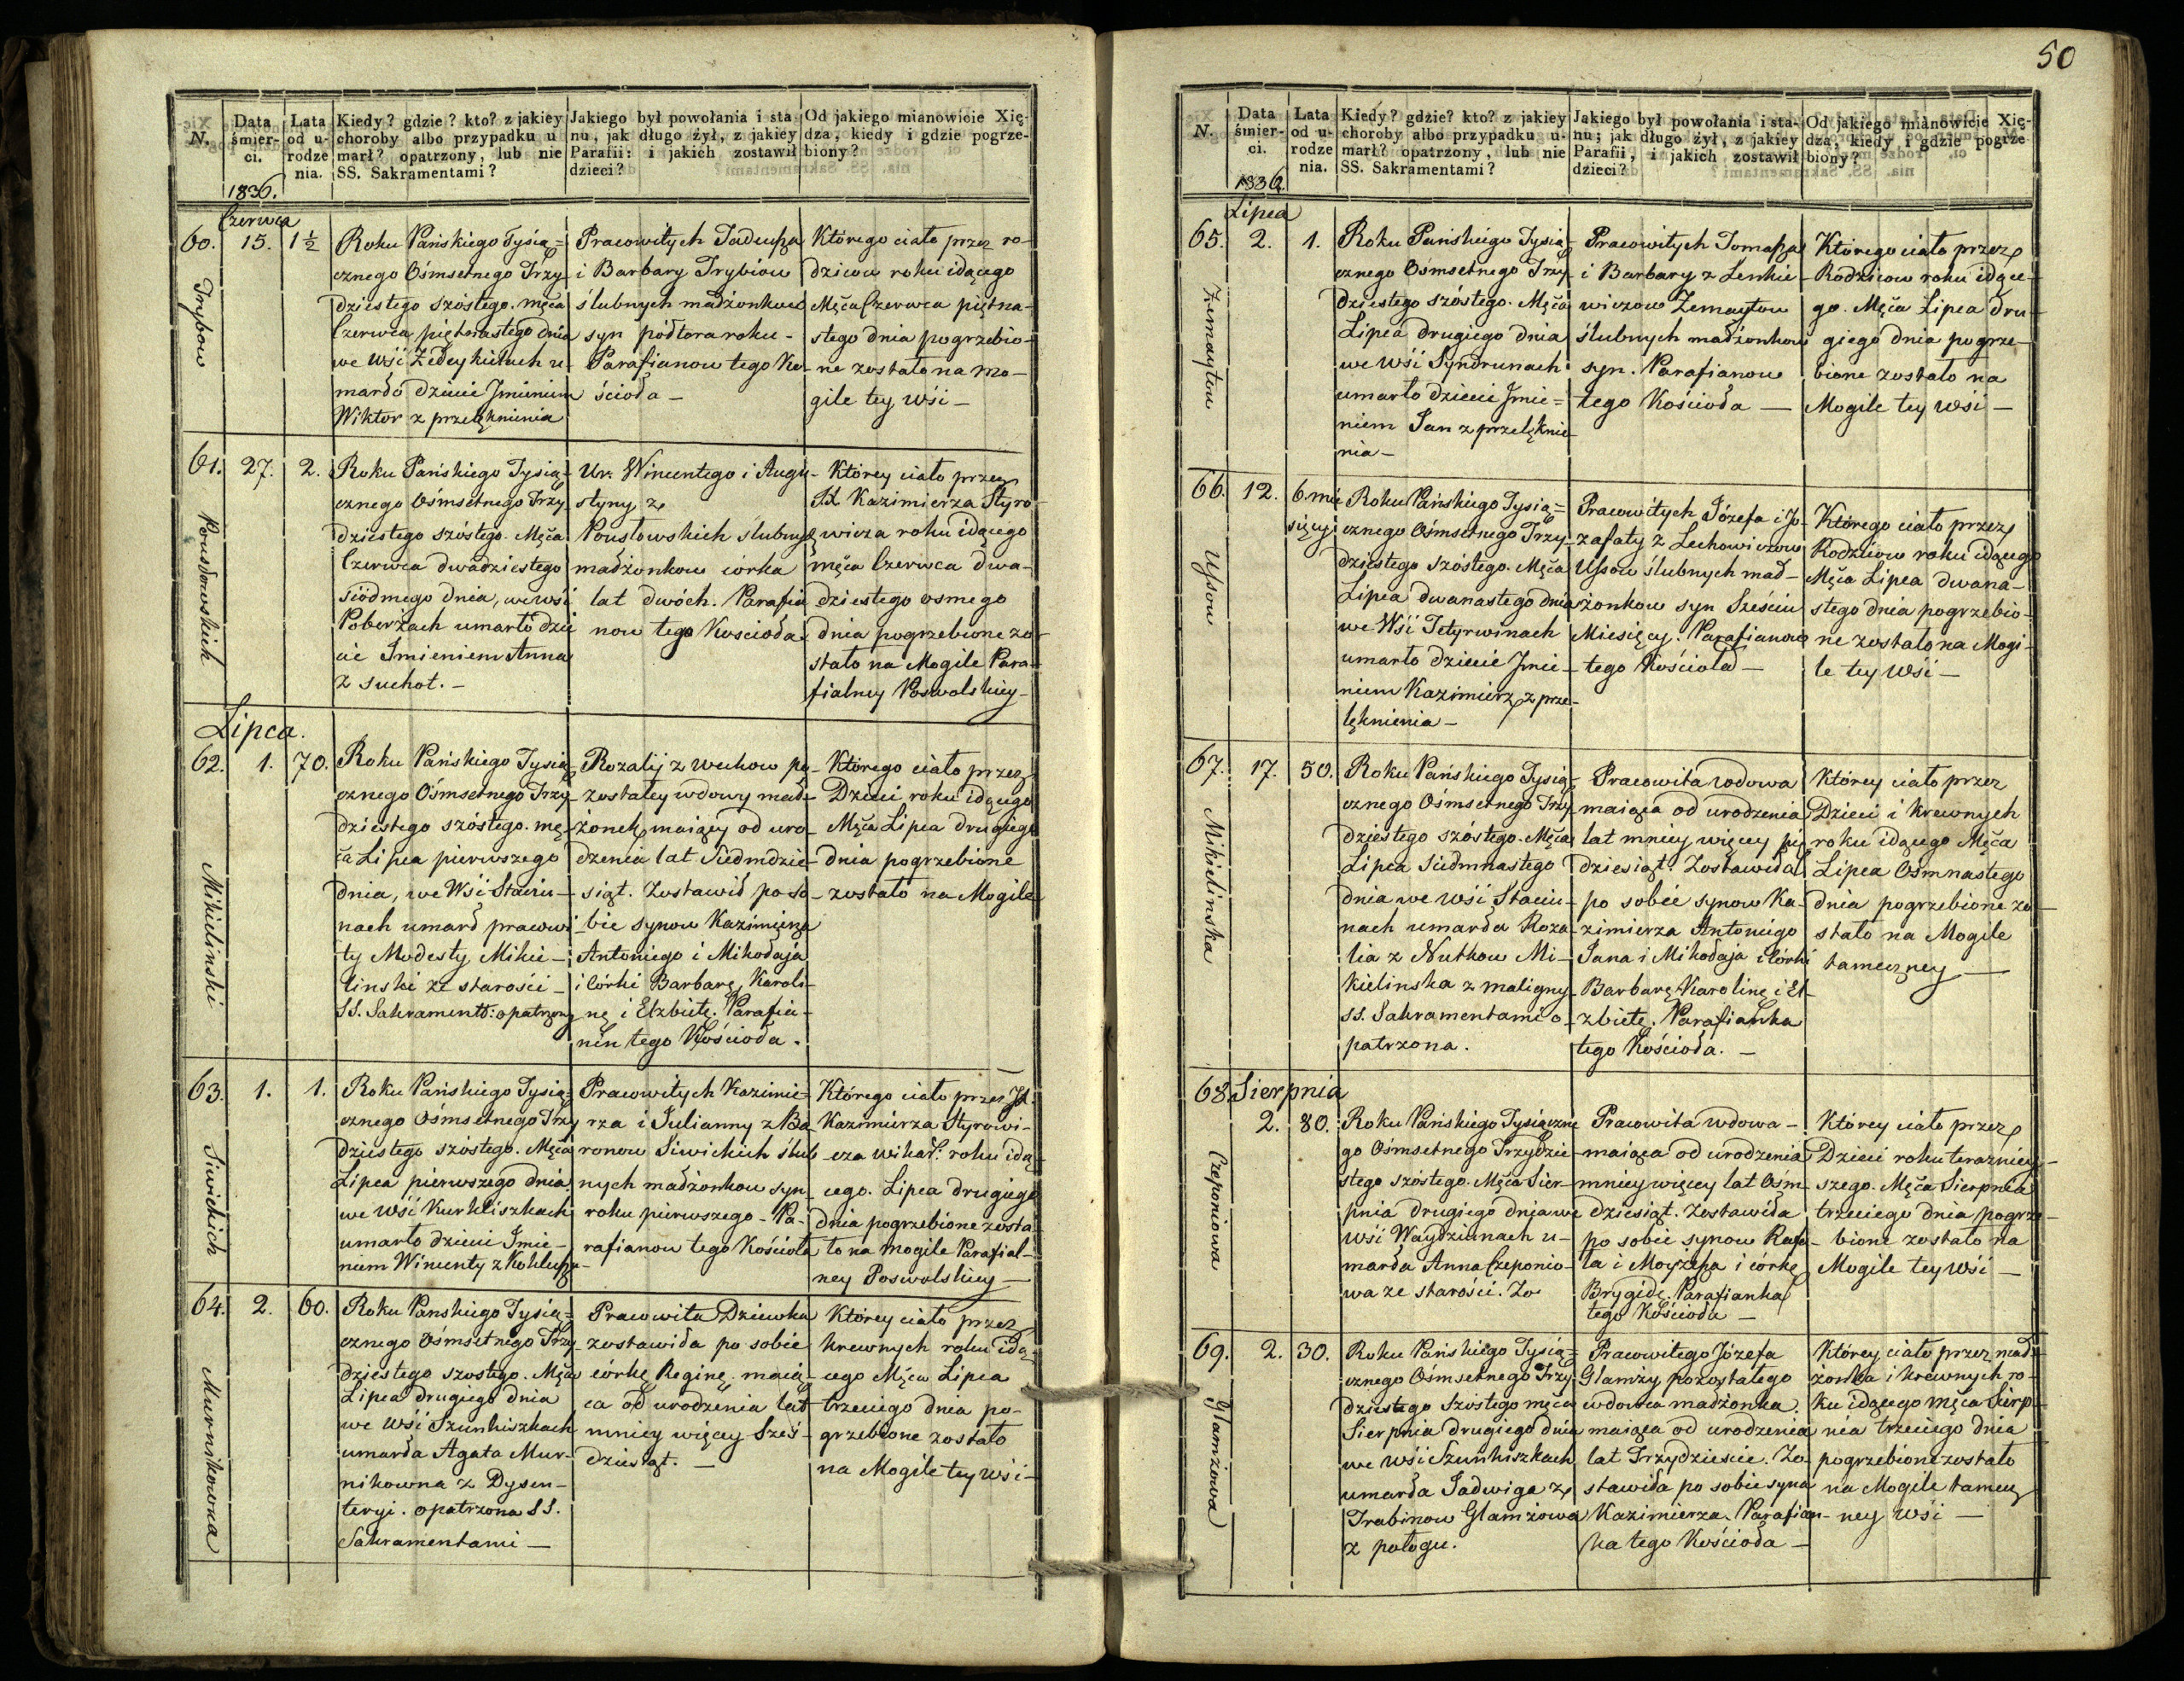 N.
Data śmier-ci.
Lata od u-rodze nia.
Kiedy? gdzie? kto? z jakiey
choroby albo przypadku u
marł? opatrzony, lub nie
SS. Sakramentami?
Jakiego był powołania i sta
nu, jak długo żył, z jakiey
Parafii: i jakich zostawił
dzieci?
Od jakiego mianowicie Xię-
dza, kiedy i gdzie pogrze-
biony?
1836.
Czerwca
60.
15.
1 ½
Trybow
Roku Pańskiego Tysią=
cznego Ośmsetnego Trzy
dziestego szóstego. męca
Czerwca piętnastego dnia
we wśi Zedeykiełach u-
marło dziecie Jmieniem
Wiktor z przelęknienia
Pracowitych Tadeusza
i Barbary Trybiow
ślubnych małżonkow
syn półtora roku -
Parafianow tego Ko-
ścioła -
Którego ciało przez ro-
dzicow roku idącego
Męca Czerwca piętna-
stego dnia pogrzebio-
ne zostało na mo-
gile tey wśi -
61.
27.
2.
Roku Pańskiego Tysią-
cznego Ośmsetnego Trzy
dziestego szóstego. Męca
Czerwca dwadziestego
siódmego dnia, we wśi
Poberżach umarło dzie
cie Jmieniem Anna
z suchot. -
Ur. Wincentego i Augu-
styny z
Poustowskich ślubnych
małżonkow corka
lat dwóch. Parafia
now tego Kościoła
Którey ciało przez
JX. Kazimierza Styro-
wicza roku idącego
męca Czerwca dwa-
dziestego osmego
dnia pogrzebione zo-
stało na Mogile Para-
fialney Poswolskiey -
Lipca.
62.
1.
70.
Mikielinski
Roku Pańskiego Tysią
cznego Ośmsetnego Trzy-
dziestego szóstego. mę-
ca Lipca pierwszego
dnia, we Wśi Staciu-
nach umarł pracowi
ty Modesty Mikie-
linski ze starości -
SS. Sakrament: opatrzony
Rozalij z wuckow po-
zostałey wdowy mał-
żonek, maiący od uro-
dzenia lat Siedmdzie-
siąt. Zostawił po so-
bie synow Kazimierza
Antoniego i Mikołaja
i Córki Barbarę, Karoli-
nę i Elzbietę. Parafia-
nin tego Kościoła.
Którego ciało przez
Dzieci roku idącego
Męca Lipca drugiego
dnia pogrzebione
zostało na Mogile
63.
1.
1.
Siwickich
Roku Pańskiego Tysią=
cznego Ośmsetnego Trzy
dziestego szóstego. Męca
Lipca pierwszego dnia
we wśi Kurkliszkach
umarło dziecie Jmie-
niem Wincenty z Kokluszu
Pracowitych Kazimie-
rza i Julianny z Ba
ronow Siwickich ślub
nych małżonkow syn
roku pierwszego - Pa-
rafianow tego Kościoła
Którego ciało przez JX.
Kazimierza Styrowi-
cza wikar: roku idą-
cego. Lipca drugiego
dnia pogrzebione zosta
ło na mogile Parafial-
ney Poswolskiey -
64.
2.
60.
Murnikowna
Roku Panskiego Tysią=
cznego Ośmsetnego Trzy-
dziestego szostego. Męca
Lipca drugiego dnia
we wśi Szunkiszkach
umarła Agata Mur-
nikowna z Dysen-
teryi. opatrzona SS.
Sakramentami -
Pracowita Dziewka
zostawiła po sobie
córkę Reginę. maią-
ca od urodzenia lat
mniey więcey Sześ-
dziesiąt. -
Którey ciało przez
krewnych roku idą-
cego Męca Lipca
trzeciego dnia po-
grzebione zostało
na Mogile tey wśi -
50
N.
Data śmier-ci.
Lata od u-rodze nia.
Kiedy? gdzie? kto? z jakiey
choroby albo przypadku u-
marł? opatrzony, lub nie
SS. Sakramentami?
Jakiego był powołania i sta-
nu; jak długo żył, z jakiey
Parafii, i jakich zostawił
dzieci?
Od jakiego mianowicie Xię-
dza, kiedy i gdzie pogrze
biony?
1836.
Lipca
65.
2.
1.
Zemaytow
Roku Pańskiego Tysią-
cznego Ośmsetnego Trzy-
dziestego szóstego. Męca
Lipca drugiego dnia
we wśi Syndrunach
umarło dziecie Jmie=
niem Jan z przelęknie-
nia -
Pracowitych Tomasza
i Barbary z Lenkie-
wiczow Zemaytow
ślubnych małżonkow
syn. Parafianow
tego Kościoła -
Którego ciało przez
Rodzicow roku idące-
go. Męca Lipca dru-
giego dnia pogrze-
bione zostało na
Mogile tey wśi -
66.
12.
6. mie
sięcy
Ussow
Roku Pańskiego Tysią=
cznego Ośmsetnego Trzy-
dziestego szóstego. Męca
Lipca dwanastego dnia
we Wśi Tetyrwinach
umarło dziecie Jmie-
niem Kazimierz z prze-
lęknienia -
Pracowitych Józefa i Jo-
zafaty z Lechowiczow
Ussow ślubnych mał-
żonkow syn Sześciu
Miesięcy. Parafianow
tego Kościoła -
Którego ciało przez
Rodzicow roku idącego
Męca Lipca dwana-
stego dnia pogrzebio-
ne zostało na Mogi-
le tey Wśi -
67.
17.
50.
Mikielinska
Roku Pańskiego Tysią-
cznego Ośmsetnego Trzy-
dziestego szóstego. Męca
Lipca siedmnastego
dnia we wśi Staciu-
nach umarła Roza-
lia z Nutkow Mi-
kielinska z maligny
SS. Sakramentami o-
patrzona.
Pracowita wdowa
maiąca od urodzenia
lat mniey więcey pię
dziesiąt. Zostawiła
po sobie synow Ka-
zimierza Antoniego
Jana i Mikołaja i Córki
Barbarę, Karolinę i El-
zbietę. Parafianka
tego Kościoła. -
Którey ciało przez
Dzieci i krewnych
roku idącego Męca
Lipca Osmnastego
dnia pogrzebione zo-
stało na Mogile
tameczney -
68.
Sierpnia
2.
80.
Czeponiowa
Roku Pańskiego Tysiączne
go Ośmsetnego Trzydzie-
stego szóstego. Męca Sier-
pnia drugiego dnia we
wśi Waydziunach u-
marła Anna Czeponio-
wa ze starości. Zo
Pracowita wdowa -
maiąca od urodzenia
mniey więcey lat Ośm-
dziesiąt. Zostawiła
po sobie synow Rafa-
ła i Moyżesza i córkę
Brygidę. Parafianka
tego Kościoła -
Którey ciało przez
Dzieci roku teraźniey-
szego. Męca Sierpnia
trzeciego dnia pogrze-
bione zostało na
Mogile tey Wśi -
69.
2.
30.
Glamżowa
Roku Pańskiego Tysią=
cznego Ośmsetnego Trzy-
dziestego Szostego męca
Sierpnia drugiego dnia
we wśi Szunkiszkach
umarła Jadwiga z
Trabinow Glamżowa
z połogu.
Pracowitego Józefa
Glamży pozostałego
wdowca małżonka.
maiąca od urodzenia
lat Trzydzieście. Zo-
stawiła po sobie syna
Kazimierza. Parafian-
ka tego Kościoła -
Którey ciało przez mał-
żonka i krewnych ro-
ku idącego męca Sierp-
nia trzeciego dnia
pogrzebione zostało
na Mogile tamecz
ney wśi -